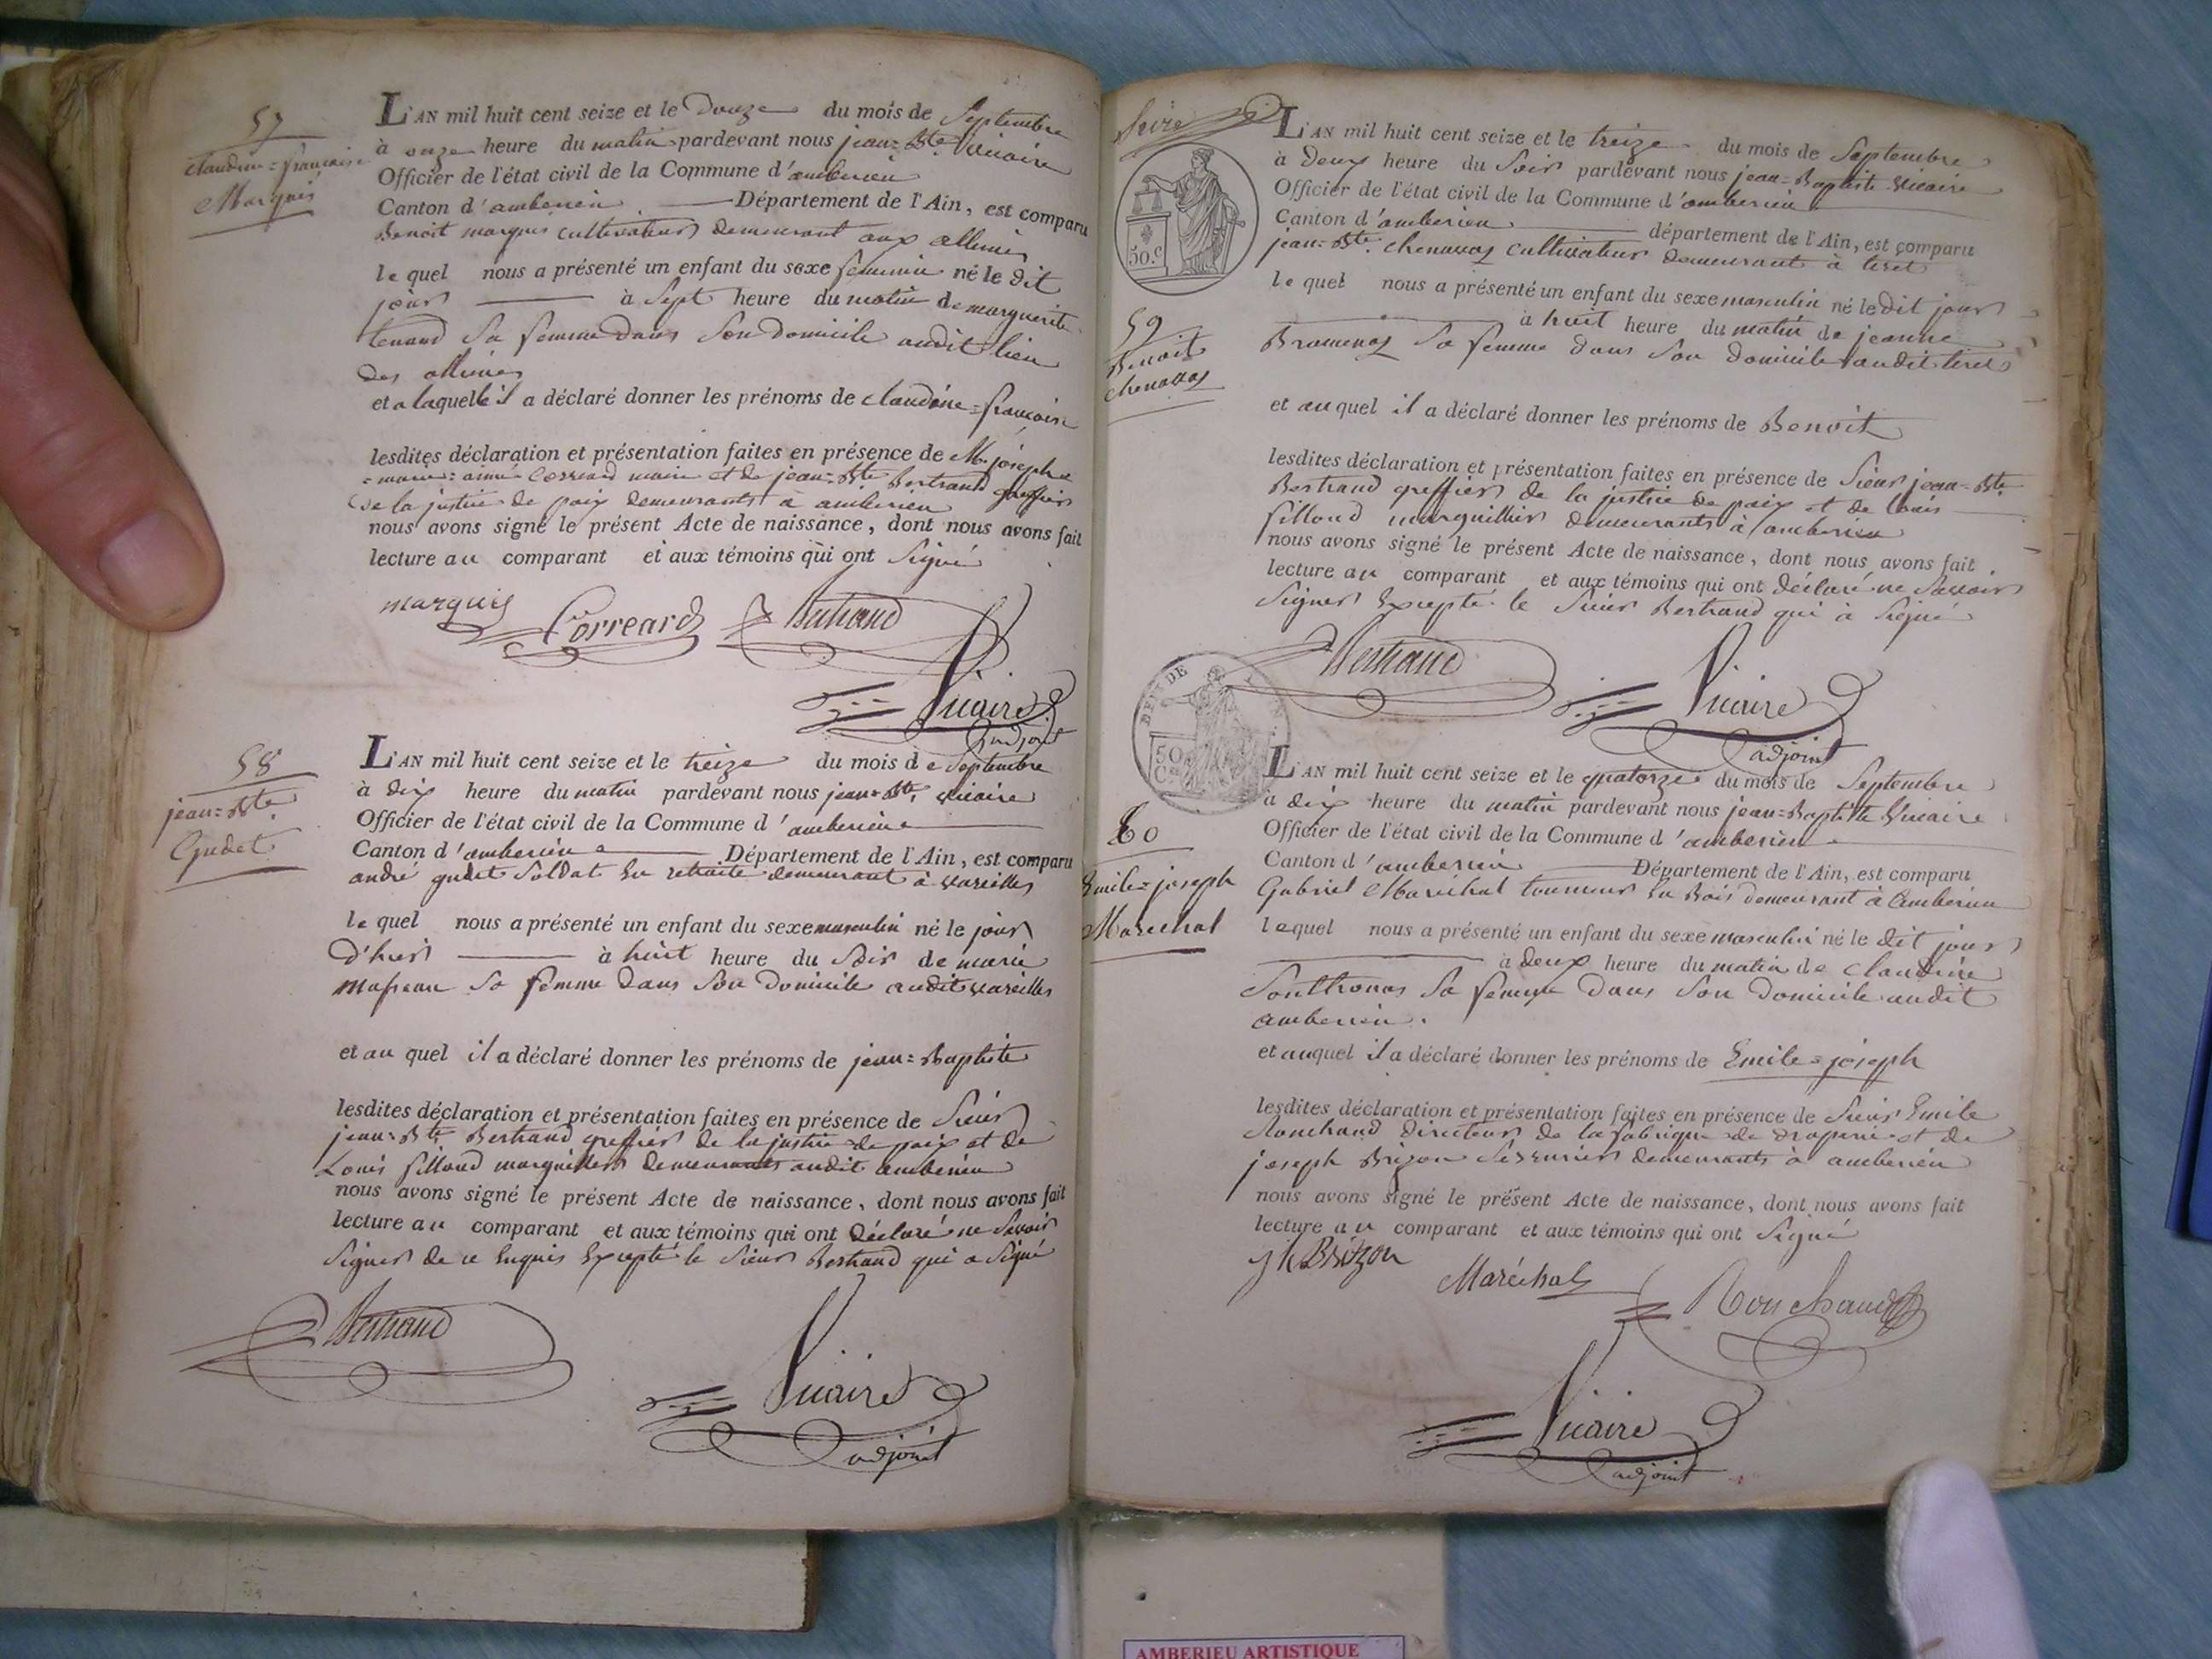 57
Claudine=françoise
Marquis
L'AN mil huit cent seize et le Douze du mois de Septembre
à onze heure du matin pardevant nous jean=Bte Vicaire
Officier de l'état civil de la Commune d'amberieu
Canton d'amberieu Département de l'Ain, est comparu
Benoit marquis cultivateur demeurant aux allimes
le quel nous a présenté un enfant du sexe feminin né le dit
jour à Sept heure du matin de marguerite
tenand Sa femme dans Son domicile audit lieu
des allimes
et a laquelle il a déclaré donner les prénoms de claudine=françoise
lesdites déclaration et présentation faites en présence de M. joseph
=marie=aimé Correard maire et de jean=Bte Bertrand greffier
de la justice de paix demeurants à amberieu
nous avons signé le présent Acte de naissance, dont nous avons fait
lecture au comparant et aux témoins qui ont Signé
marquis Correard Bertrand
Vicaire
adjoint
58
jean=Bte
Gudet
L'AN mil huit cent seize et le treize du mois de Septembre
à dix heure du matin pardevant nous jean=Bte Vicaire
Officier de l'état civil de la Commune d'amberieu
Canton d'amberieu Département de l'Ain, est comparu
andré gudet Soldat en retraite demeurant à vareilles
le quel nous a présenté un enfant du sexe masculin né le jour
d'hier à huit heure du Soir de marie
Sa femme dans Son domicile audit vareilles
et au quel il a déclaré donner les prénoms de jean=Baptiste
lesdites déclaration et présentation faites en présence de Sieur
jean=Bte Bertrand greffier de la justice de paix et de
Louis fillond marguillier demeurants audit amberieu
nous avons signé le présent Acte de naissance, dont nous avons fait
lecture au comparant et aux témoins qui ont déclaré ne Savoir
Signer de ce Enquis Excepté le Sieur Bertrand qui a Signé
Bertrand
Vicaire
adjoint
50.c
59
Benoit
chenavaz
L'AN mil huit cent seize et le treize du mois de Septembre
à Deux heure du Soir pardevant nous jean=Baptiste Vicaire
Officier de l'état civil de la Commune d'amberieu
Canton d'amberieu département de l'Ain, est comparu
jean=Bte chenavaz cultivateur demeurant à tiret
le quel nous a présenté un enfant du sexe masculin né le dit jour
à huit heure du matin de jeanne
Bramenas Sa femme dans Son domicile audit tiret
et au quel il a déclaré donner les prénoms de Benoit
lesdites déclaration et présentation faites en présence de Sieur jean=Bte
Bertrand greffier de la justice de paix et de Louis
fillond marguillier demeurants à amberieu
nous avons signé le présent Acte de naissance, dont nous avons fait
lecture au comparant et aux témoins qui ont déclaré ne Savoir
Signer Excepté le Sieur Bertrand qui à Signé
Bertrand
Vicaire
adjoint
50
60
Emile=joseph
Marechal
L'AN mil huit cent seize et le quatorze du mois de Septembre
à dix heure du matin pardevant nous jean=Baptiste Vicaire
Officier de l'état civil de la Commune d'amberieu
Canton d'amberieu Département de l'Ain, est comparu
Gabriel Maréchal tourneur en Bois demeurant à amberieu
lequel nous a présenté un enfant du sexe masculin né le dit jour
à deux heure du matin de claudine
Southonas Sa femme dans Son domicile audit
amberieu.
et auquel il a déclaré donner les prénoms de Emile=joseph
lesdites déclaration et présentation faites en présence de Sieur Emile
Rouchaud directeur de la fabrique de draperie et de
joseph Brizon Serrurier demeurants à amberieu
nous avons signé le présent Acte de naissance, dont nous avons fait
lecture au comparant et aux témoins qui ont Signé
jh Brizon Maréchal Rouchaud
Vicaire
adjoint
AMBERIEU ARTISTIQUE